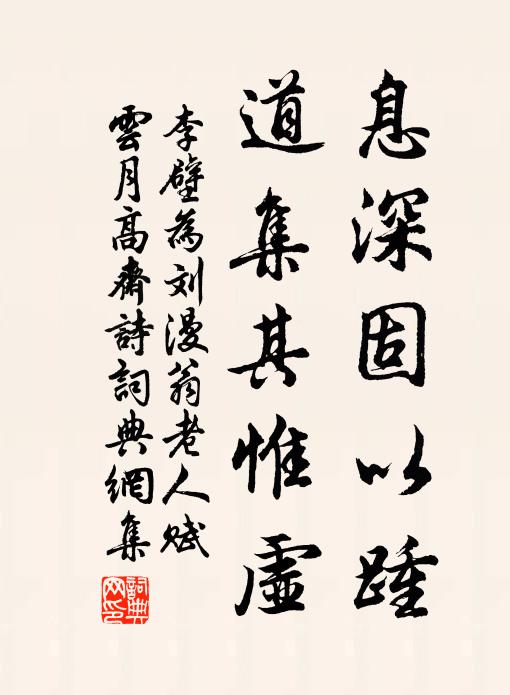 息深固以踵
道集其惟虛
李壁為刘漫翁老人赋
雲月高齋詩詞典網集
詞典
网印